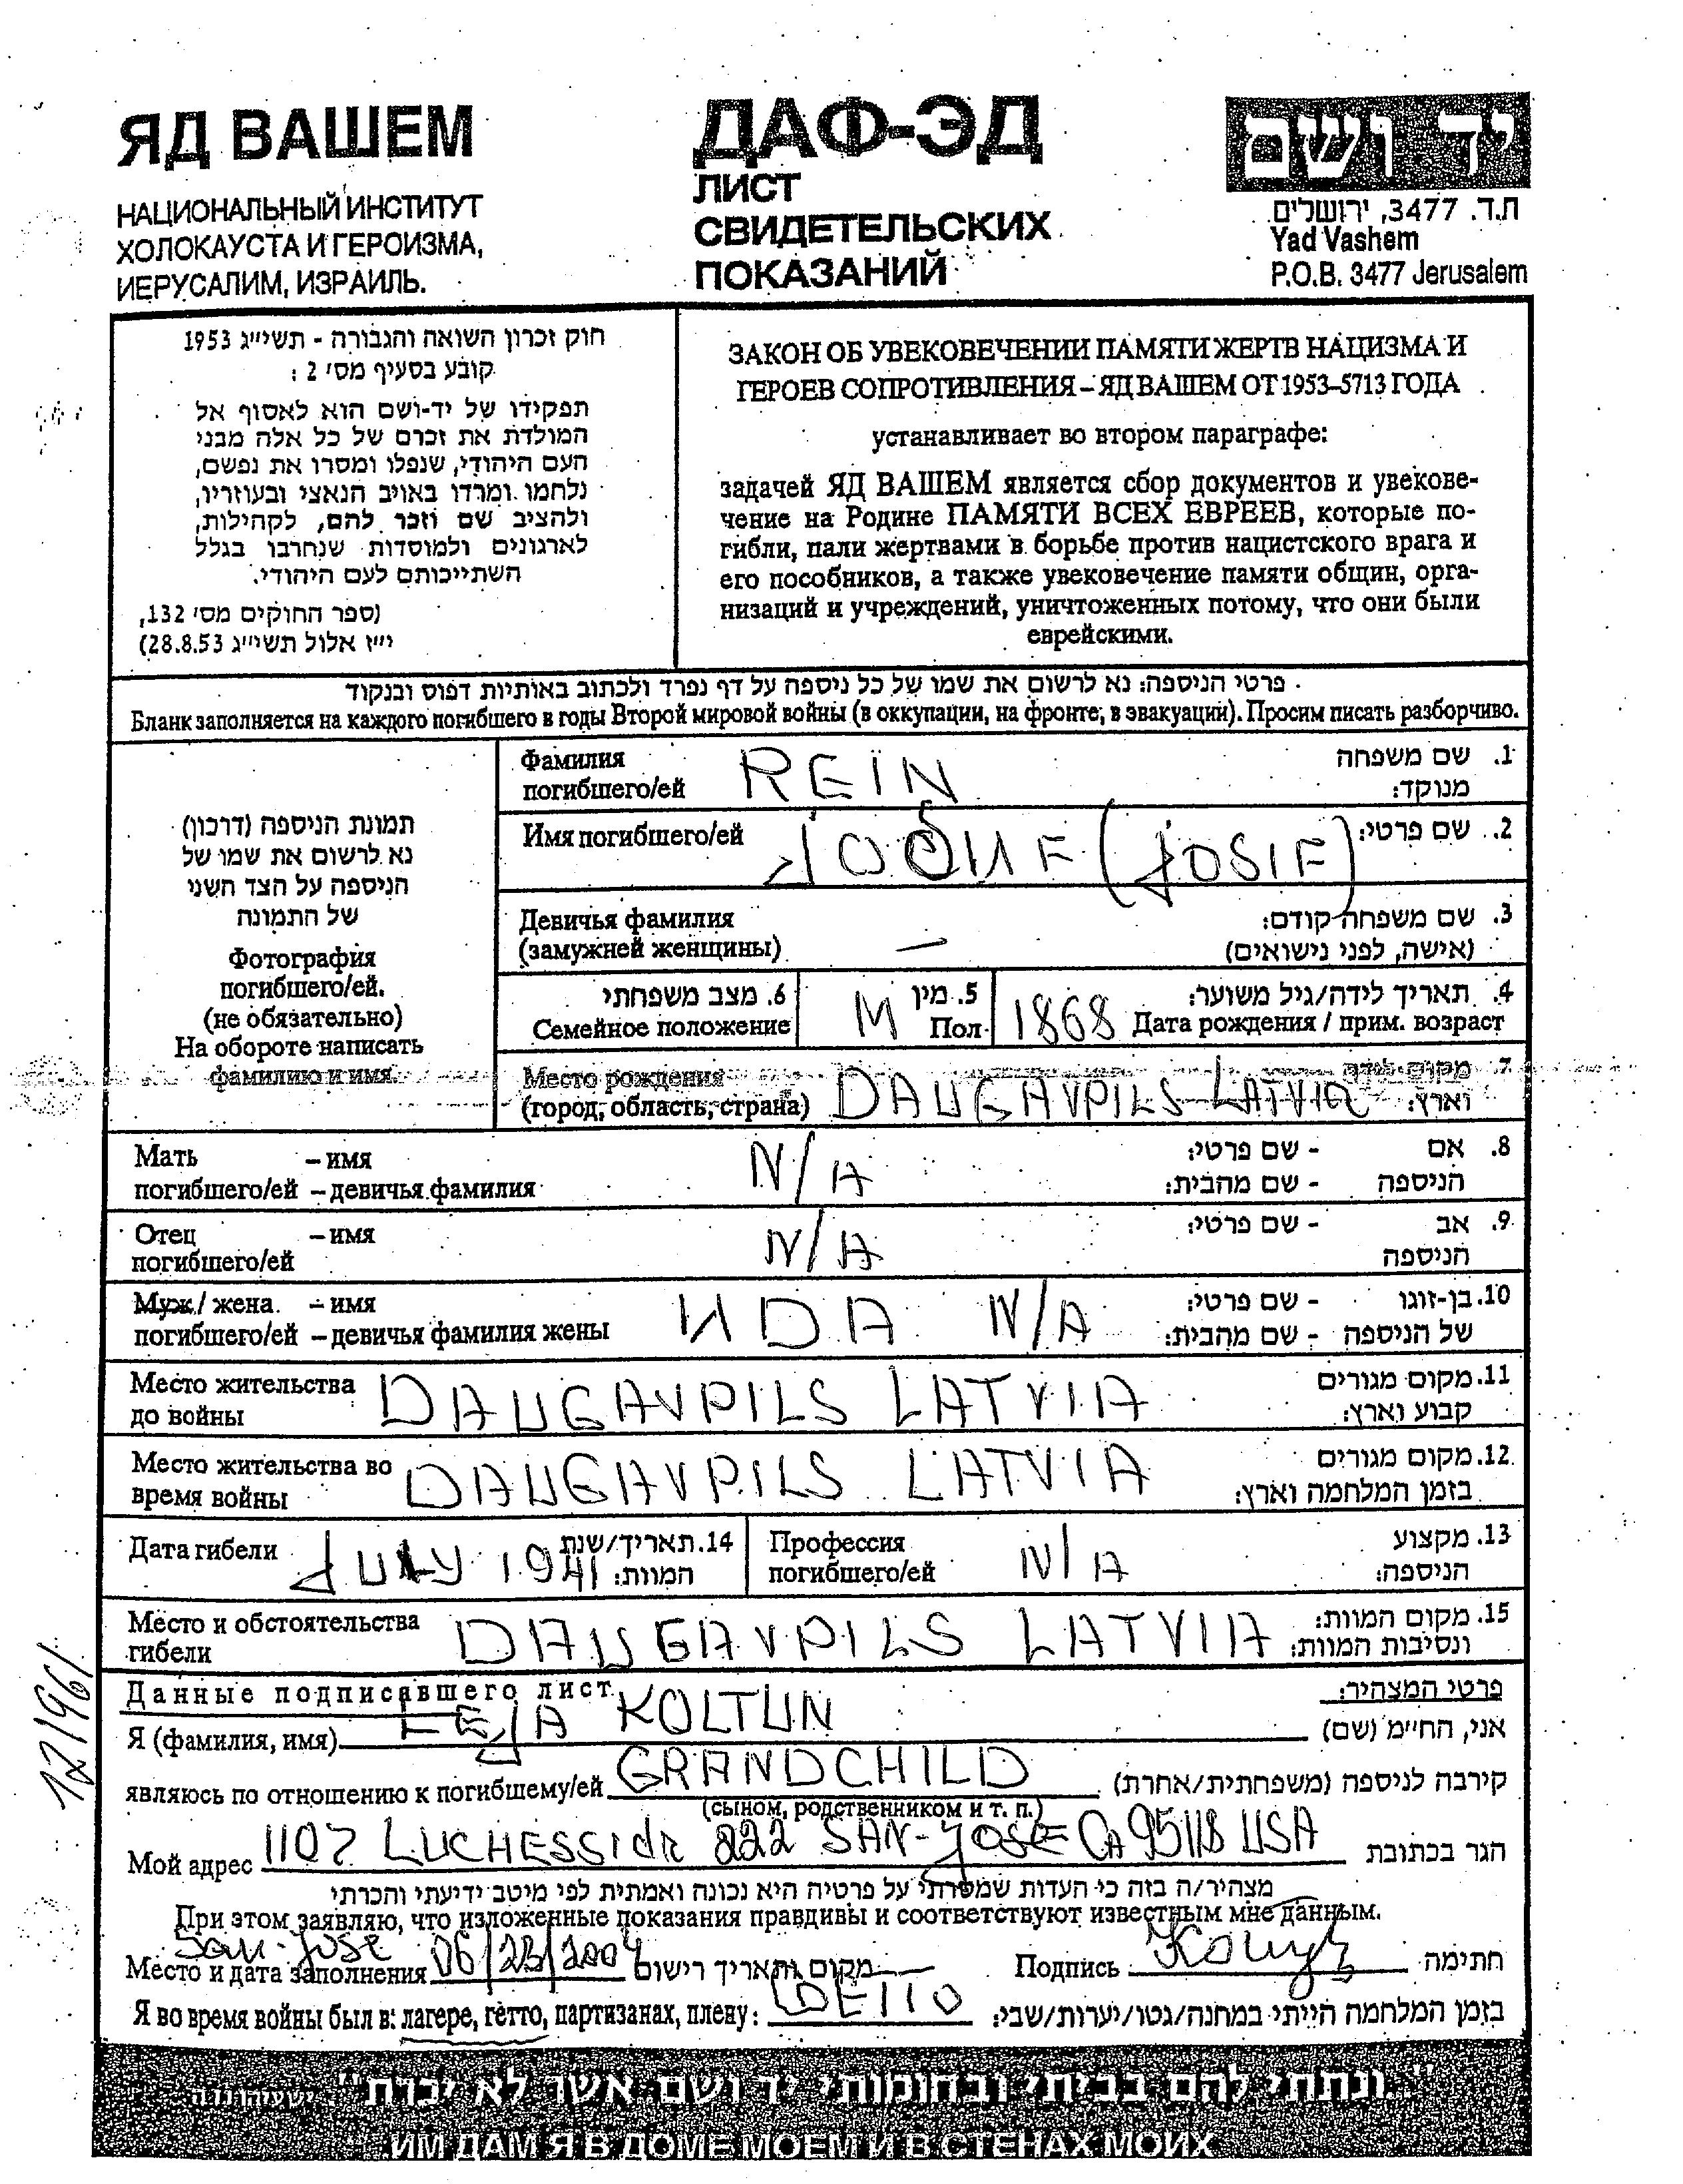 ЯД ВАШЕМ
НАЦИОНАЛЬНЫЙ ИНСТИТУТ
ХОЛОКАУСТА И ГЕРОИЗМА,
ИЕРУСАЛИМ, ИЗРАИЛЬ.
ДАФ-ЭД
ЛИСТ
СВИДЕТЕЛЬСКИХ
ПОКАЗАНИЙ
יד ושם
ת.ד. 3477, ירושלים
Yad Vashem
P.O.B. 3477 Jerusalem
חוק זכרון השואה והגבורה - תשי״ג 1953
קובע בסעיף מס׳ 2 :
תפקידו של יד-ושם הוא לאסוף אל
המולדת את זכרם של כל אלה מבני
העם היהודי, שנפלו ומסרו את נפשם,
נלחמו ומרדו באויב הנאצי ובעוזריו,
ולהציב שם וזכר להם, לקהילות,
לארגונים ולמוסדות שנחרבו בגלל
השתייכותם לעם היהודי.
(ספר החוקים מס׳ 132,
י״ז אלול תשי״ג 28.8.53)
ЗАКОН ОБ УВЕКОВЕЧЕНИИ ПАМЯТИ ЖЕРТВ НАЦИЗМА И
ГЕРОЕВ СОПРОТИВЛЕНИЯ – ЯД ВАШЕМ ОТ 1953–5713 ГОДА
устанавливает во втором параграфе:
задачей ЯД ВАШЕМ является сбор документов и увекове-
чение на Родине ПАМЯТИ ВСЕХ ЕВРЕЕВ, которые по-
гибли, пали жертвами в борьбе против нацистского врага и
его пособников, а также увековечение памяти общин, орга-
низаций и учреждений, уничтоженных потому, что они были
еврейскими.
פרטי הניספה: נא לרשום את שמו של כל ניספה על דף נפרד ולכתוב באותיות דפוס ובנקוד
Бланк заполняется на каждого погибшего в годы Второй мировой войны (в оккупации, на фронте, в эвакуации). Просим писать разборчиво.
תמונת הניספה (דרכון)
נא לרשום את שמו של
הניספה על הצד השני
של התמונה
Фотография
погибшего/ей.
(не обязательно)
На обороте написать
фамилию и имя.
Фамилия REIN 1. שם משפחה
погибшего/ей מנוקד:
Имя погибшего/ей (JOSIF) 2. שם פרטי:
Девичья фамилия 3. שם משפחה קודם:
(замужней женщины) — (אישה, לפני נישואים)
6. מצב משפחתי M 5. מין 1868 4. תאריך לידה/גיל משוער:
Семейное положение Пол Дата рождения / прим. возраст
Место рождения DAUGAVPILS LATVIA 7. מקום לידה
(город, область, страна) וארץ:
Мать – имя N/A 8. אם - שם פרטי:
погибшего/ей – девичья фамилия הניספה - שם מהבית:
Отец – имя N/A 9. אב - שם פרטי:
погибшего/ей הניספה
Муж / жена – имя ИДА N/A 10. בן-זוגו - שם פרטי:
погибшего/ей – девичья фамилия жены של הניספה - שם מהבית:
Место жительства DAUGAVPILS LATVIA 11. מקום מגורים
до войны קבוע וארץ:
Место жительства во DAUGAVPILS LATVIA 12. מקום מגורים
время войны בזמן המלחמה וארץ:
Дата гибели JULY 1941 14. תאריך/שנת המוות: Профессия N/A 13. מקצוע
погибшего/ей הניספה:
Место и обстоятельства DAUGAVPILS LATVIA 15. מקום המוות:
гибели ונסיבות המוות:
Данные подписавшего лист פרטי המצהיר:
Я (фамилия, имя) LEJA KOLTUN אני, הח״מ (שם)
являюсь по отношению к погибшему/ей GRANDCHILD קירבה לניספה (משפחתית/אחרת)
(сыном, родственником и т. п.)
Мой адрес 1107 LUCHESSI dr 222 SAN-JOSE CA 95118 USA הגר בכתובת
מצהיר/ה בזה כי העדות שמסרתי על פרטיה היא נכונה ואמתית לפי מיטב ידיעתי והכרתי
При этом заявляю, что изложенные показания правдивы и соответствуют известным мне данным.
San-Jose
Место и дата заполнения 06/23/2004 מקום ותאריך רישום Подпись חתימה
Я во время войны был в: лагере, гетто, партизанах, плену: בזמן המלחמה הייתי במחנה/גטו/יערות/שבי:
"ונתתי להם בביתי ובחומותי יד ושם אשר לא יכרת"
ИМ ДАМ Я В ДОМЕ МОЕМ И В СТЕНАХ МОИХ